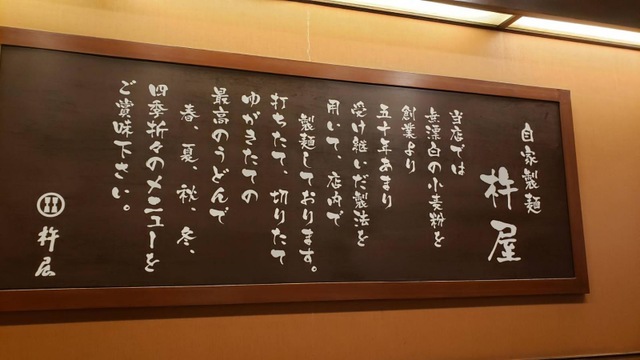 自家製麺
杵屋
当店では
無漂白の小麦粉を
創業より
五十年あまり
受け継いだ製法を
用いて、店内で
製麺しております。
打ちたて、切りたて
ゆがきたての
最高のうどんで
春、夏、秋、冬、
四季折々のメニューを
ご賞味下さい。
杵屋